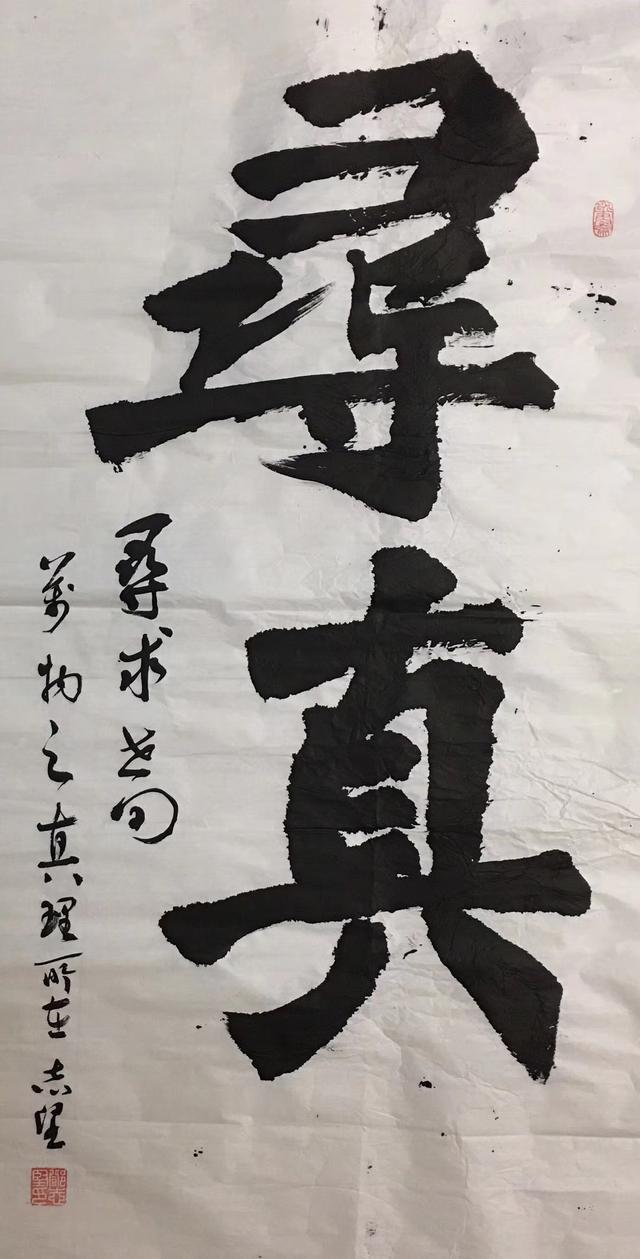 尋真
尋求世间
万物之真理所在 志坚